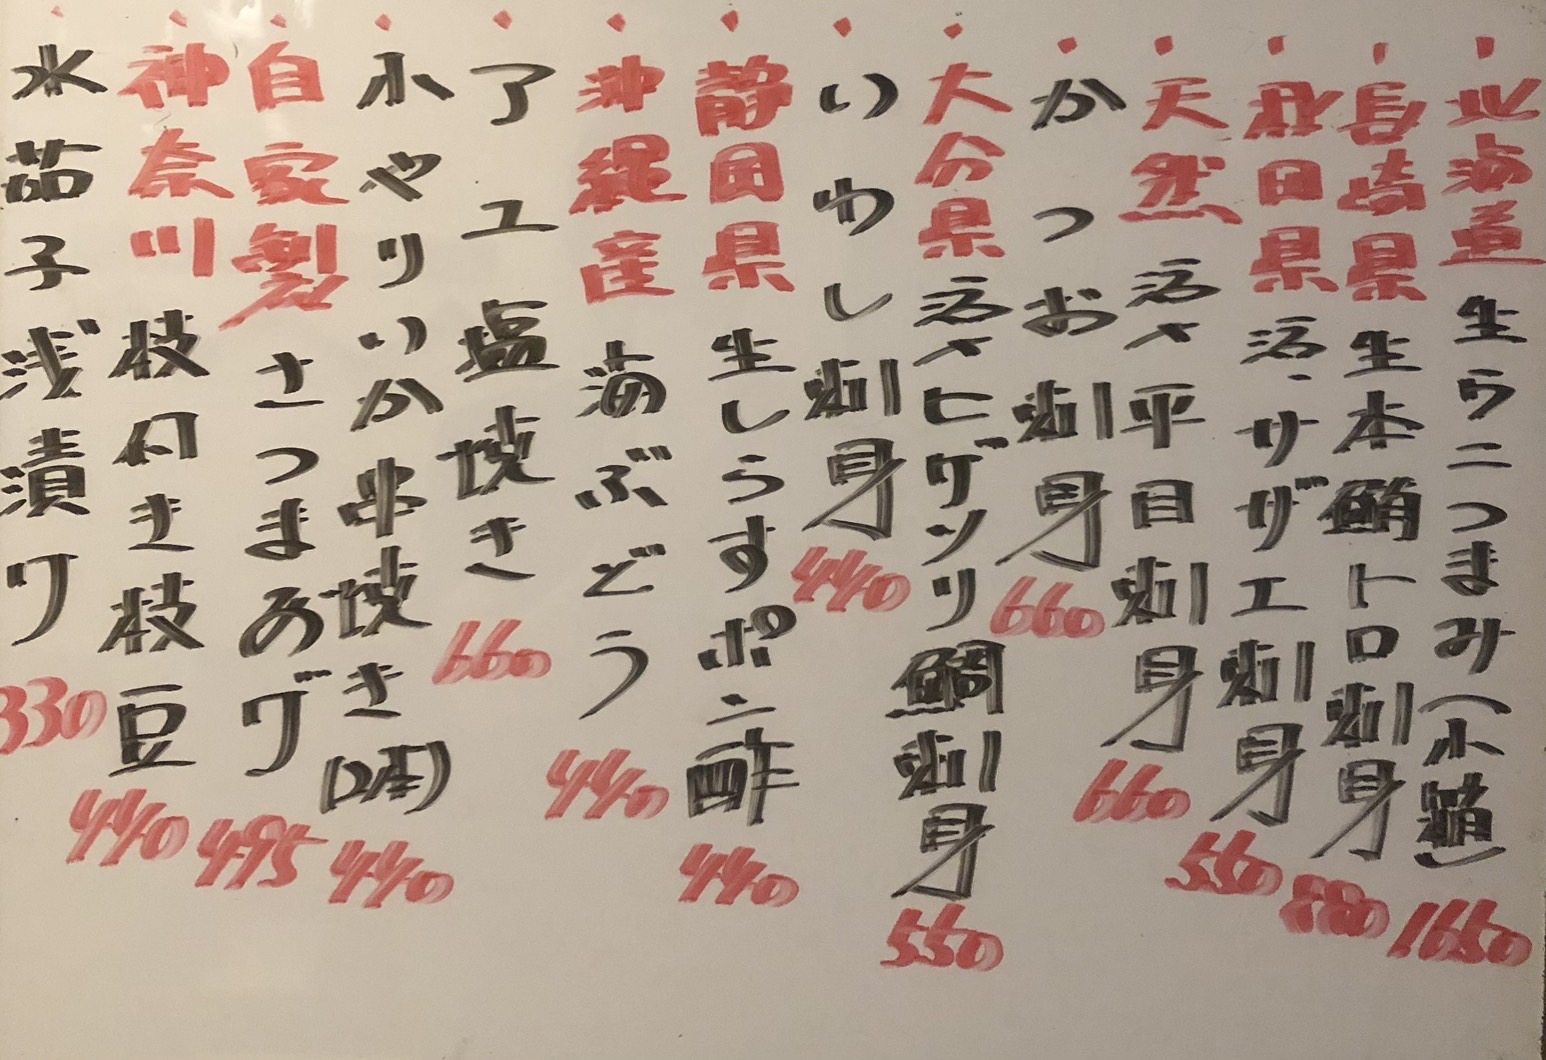 北海道生ウニつまみ(小箱)1650
長崎県生本鮪トロ刺身880
秋田県活サザエ刺身550
天然活〆平目刺身660
かつお刺身660
大分県活〆ヒゲソリ鯛刺身550
いわし刺身440
静岡県生しらすポン酢440
沖縄産海ぶどう440
アユ塩焼き660
小やりいか串焼き(2本)440
自家製さつまあげ495
神奈川枝付き枝豆440
水茄子浅漬け330